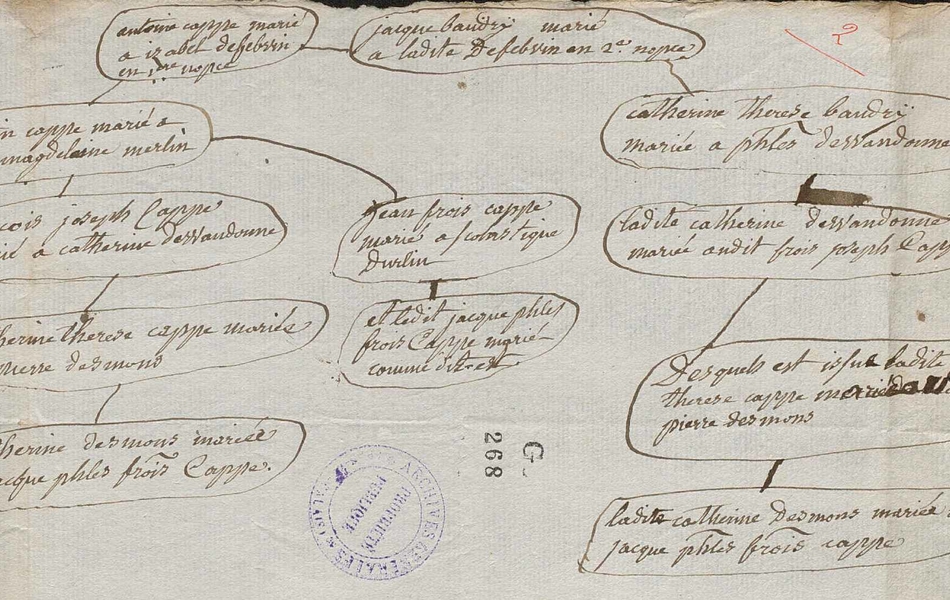 antoine cappe marié
a izabel defebvin
en 1ere nopce
jacque baudrÿ marié
a ladite Defebvin en 2e nopce
2
in cappe marié a
magdelaine merlin
catherine therese baudrÿ
mariée a phles deWandonne
cois joseph Cappe
ié a catherine deWandonne
jean frois cappe
marié a scolastique
Durlin
ladite catherine deWandonne
mariée audit frois joseph Capp
herine therese cappe mariée
pierre desmons
et ledit jacque phles
frois Cappe marié
comme dit est
Desquels est issue ladite
therese cappe mariée
pierre desmons
therine desmons mariée
acque phles frois Cappe.
ladite catherine Desmons mariée
jacque phles frois cappe
G.
268
ARCHIVES GENERALES
PROPRIÉTÉ
PUBLIQUE